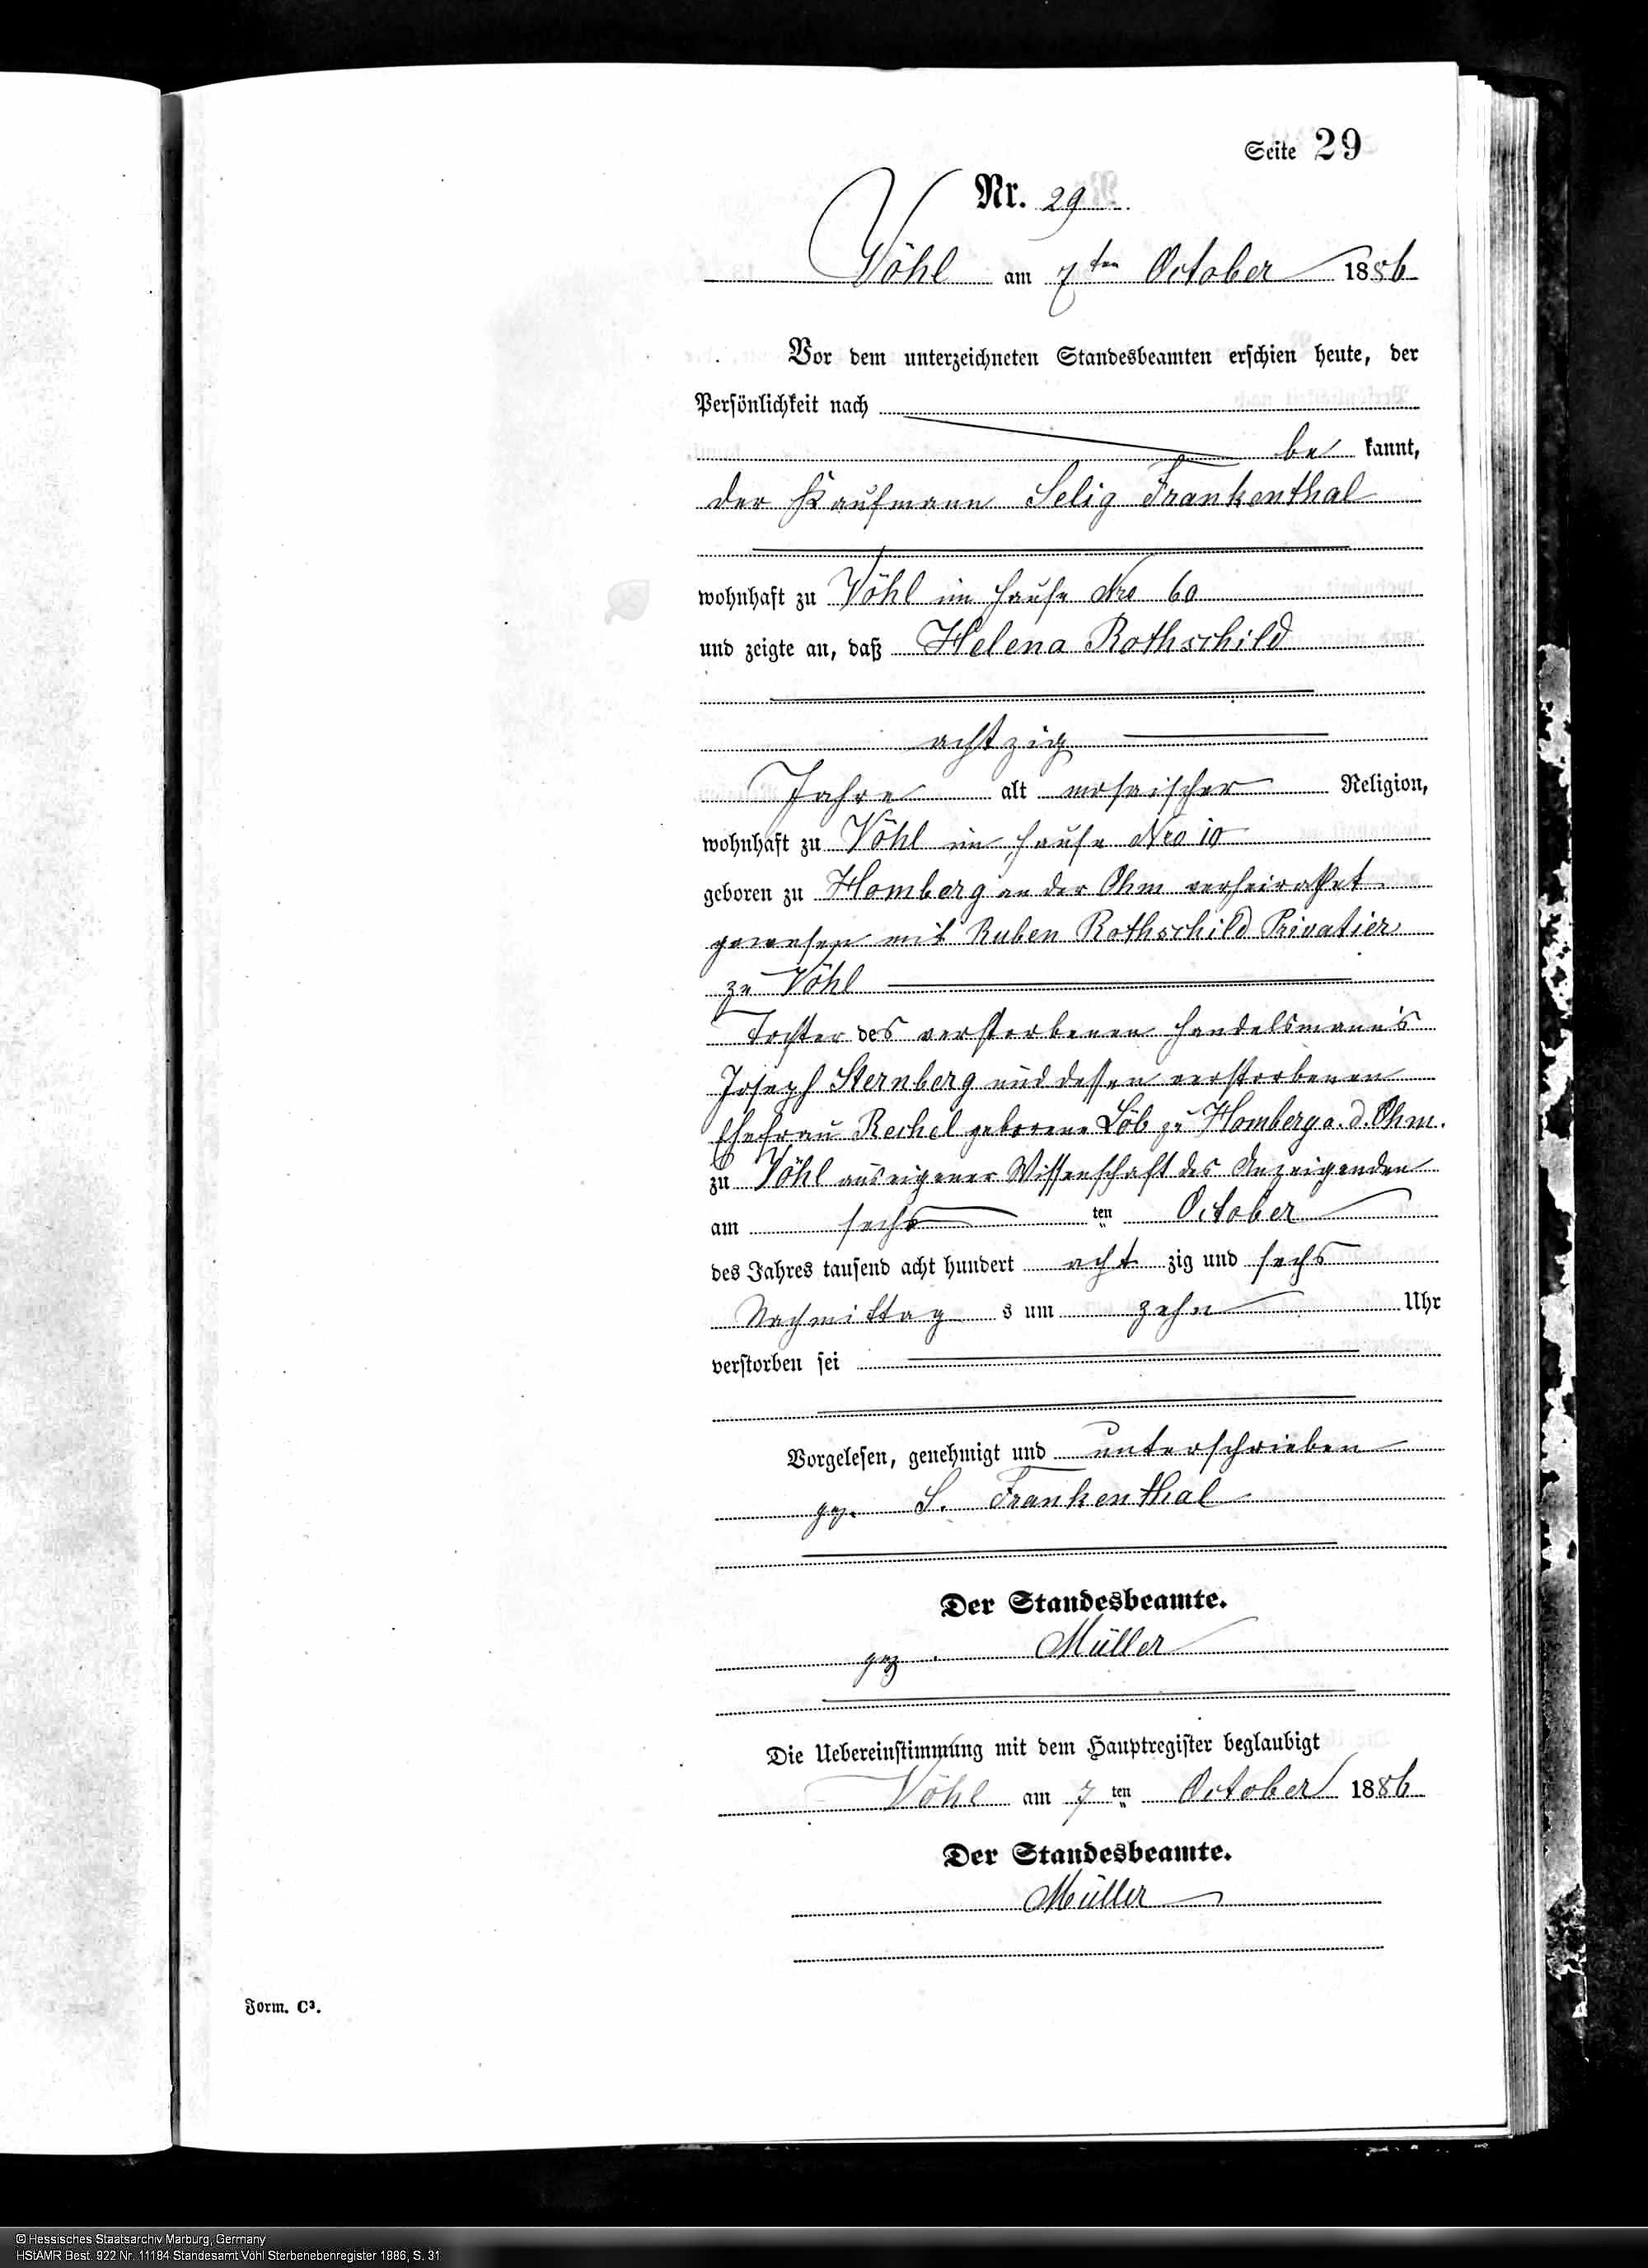 Seite 29
Nr. 29
Vöhl am 7ten October 1886
Vor dem unterzeichneten Standesbeamten erschien heute, der
Persönlichkeit nach
be kannt,
der Kaufmann Selig Frankenthal
wohnhaft zu Vöhl im Hause Nro 60
und zeigte an, daß Helena Rothschild
achtzig
Jahre alt mosaischer Religion,
wohnhaft zu Vöhl im Hause Nro 10
geboren zu Homberg an der Ohm verheirathet
gewesen mit Ruben Rothschild Privatier
zu Vöhl
Tochter des verstorbenen Handelsmann's
Joseph Sternberg und dessen verstorbenen
Ehefrau Rechel geborene Löb zu Homberg a. d. Ohm.
zu Vöhl aus eigener Wissenschaft des Anzeigenden
am sechs ten October
des Jahres tausend acht hundert acht zig und sechs
Nachmittag s um zehn Uhr
verstorben sei
Vorgelesen, genehmigt und unterschrieben
gez. S. Frankenthal
Der Standesbeamte.
gez. Müller
Die Uebereinstimmung mit dem Hauptregister beglaubigt
Vöhl am 7 ten October 1886
Der Standesbeamte.
Müller
Form. C³.
© Hessisches Staatsarchiv Marburg, Germany
HStAMR Best. 922 Nr. 11184 Standesamt Vöhl Sterbenebenregister 1886, S. 31